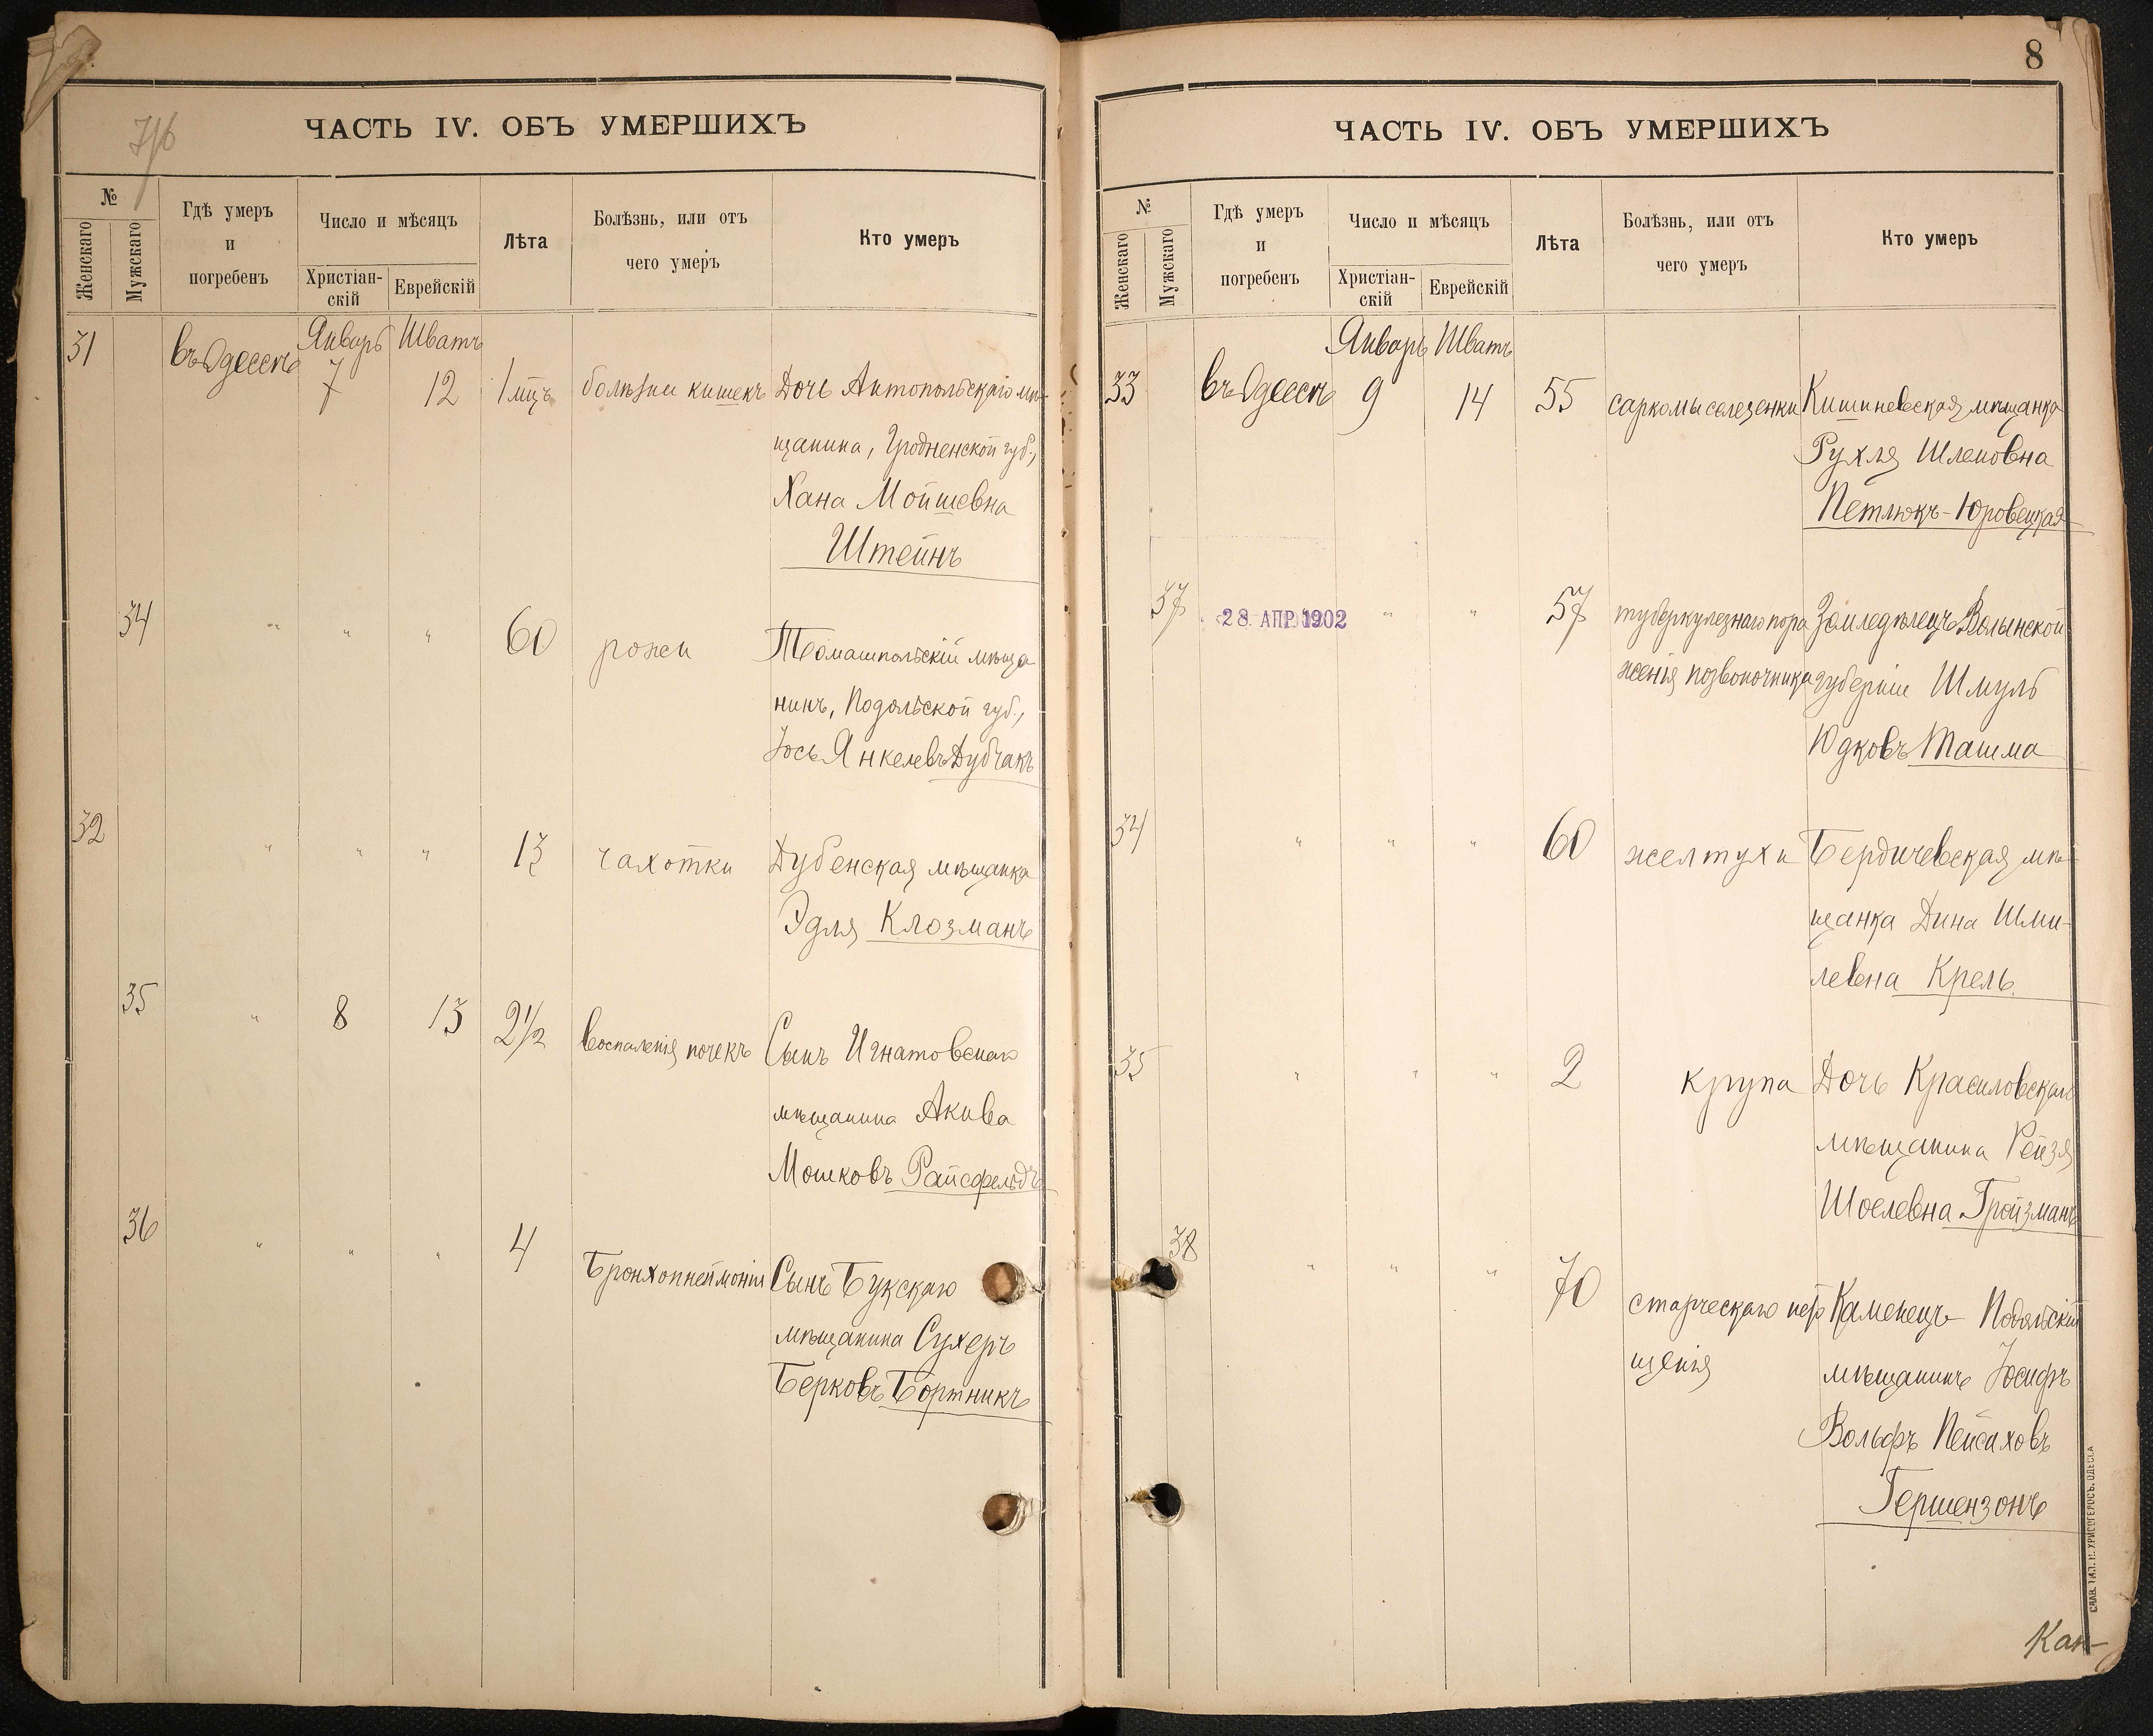 7/б
ЧАСТЬ IV. ОБЪ УМЕРШИХЪ
№
Женскаго
Мужскаго
Гдѣ умеръ
и
погребенъ
Число и мѣсяцъ
Христіан-
скій
Еврейскій
Лѣта
Болѣзнь, или отъ
чего умеръ
Кто умеръ
31 въ Одессѣ Январь Шватъ
7 12 1 мцъ болѣзни кишекъ Дочь Антопольскаго мѣ-
щанина, Гродненской губ.,
Хана Мойшевна
Штейнъ
34 " " " 60 рожи Томашпольскій мѣща
нинъ, Подольской губ.,
Іось Янкелевъ Дубчакъ
32 " " " 13 чахотки Дубенская мѣщанка
Эдля Клозманъ
35 " 8 13 2½ воспаленія почекъ Сынъ Игнатовскаго
мѣщанина Акива
Мошковъ Райсфельдъ
36 " " " 4 Бронхопнеймонія Сынъ Букскаго
мѣщанина Сухеръ
Берковъ Бортникъ
8
ЧАСТЬ IV. ОБЪ УМЕРШИХЪ
№
Женскаго
Мужскаго
Гдѣ умеръ
и
погребенъ
Число и мѣсяцъ
Христіан-
скій
Еврейскій
Лѣта
Болѣзнь, или отъ
чего умеръ
Кто умеръ
Январь Шватъ
33 въ Одессѣ 9 14 55 саркомы селезенки Кишиневская мѣщанка
Рухля Шлемовна
Петлюкъ-Юровецкая
37 28 АПР 1902 " " 57 туберкулезнаго пора Земледѣлецъ Волынской
женія позвоночника губерніи Шмуль
Юдковъ Ташма
34 " " " 60 желтухи Бердичевская мѣ-
щанка Дина Шми-
левна Крель
35 " " " 2 крупа Дочь Красиловскаго
мѣщанина Рейзя
Шоелевна Гройзманъ
38 " " " 70 старческаго исто Каменецъ-Подольскій
щенія мѣщанинъ Іосифъ
Вольфъ Пейсаховъ
Гершензонъ
СЛАВ. ТИП. Н. ХРИСОГЕЛОСЪ. ОДЕССА
Кан-